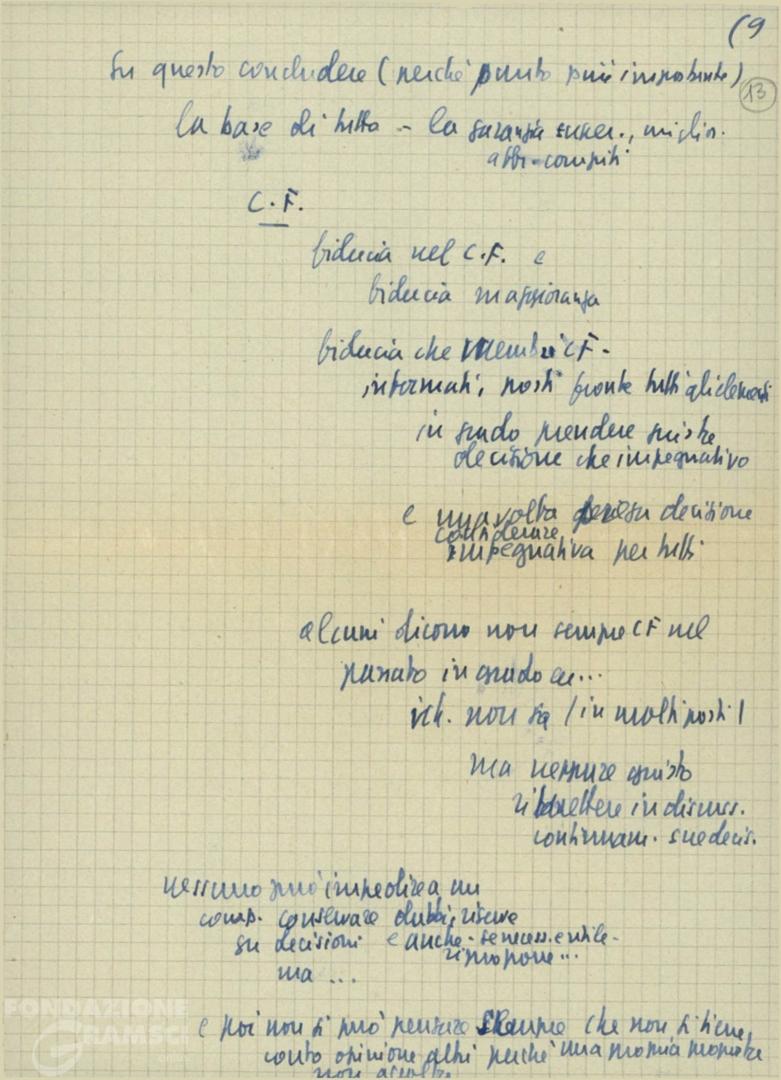 (9
Su questo concludere (perché punto più importante)
13
la base di tutto - la garanzia succes., miglior.
abbi-compiti
C.F.
fiducia nel C.F. e
fiducia maggioranza
fiducia che membri CF -
informati, posti fronte tutti gli elementi
in grado prendere giuste
decisione che impegnativo
e una volta presa decisione
considerare
impegnativa per tutti
alcuni dicono non sempre CF nel
passato in grado ecc...
non so / in molti posti /
ma neppure giusto
rimettere in discuss.
continuam. sue decis.
nessuno può impedire a un
comp. conservare dubbi, riserve
su decisioni e anche - se necess. e utile -
ripropone...
ma ...
e poi non si può pensare sempre che non si tiene
conto opinione altri perché una propria proposta
non accolta
FONDAZIONE
GRAMSCI